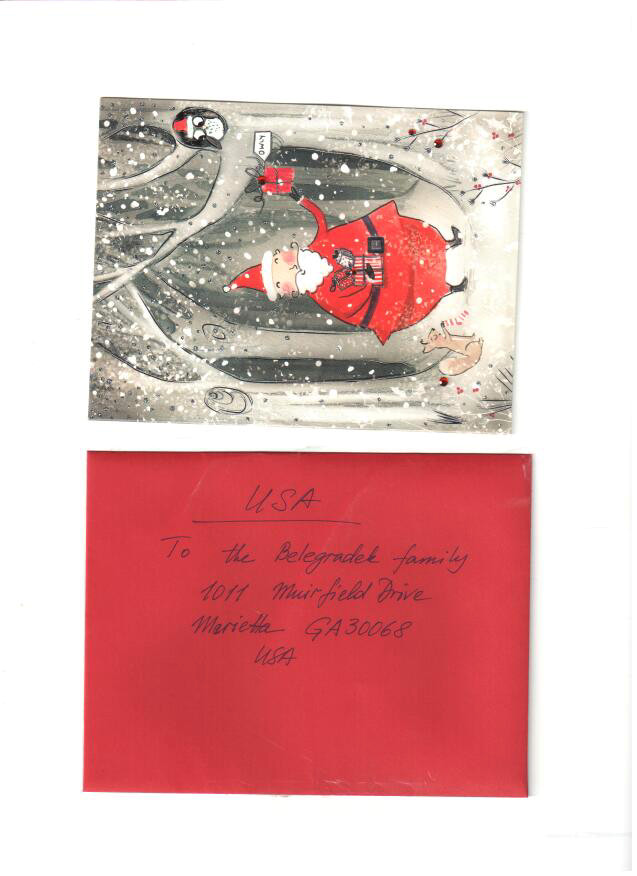 USA
To the Belegradek family
1011 Muirfield Drive
Marietta GA 30068
USA